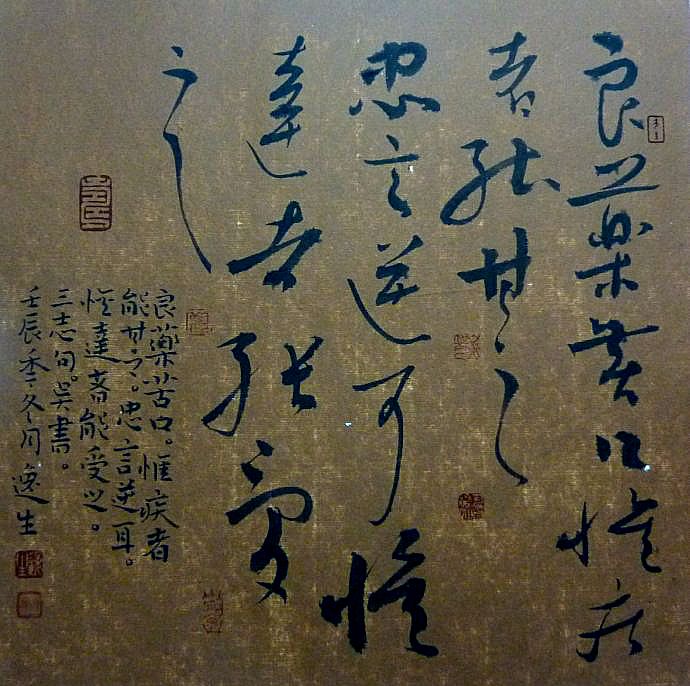 良藥苦口惟疾
者能甘之
忠言逆耳惟
達者能受
之
良藥苦口。惟疾者
能甘之。忠言逆耳。
惟達者能受之。
三志句。吴書。
壬辰季冬月 逸生